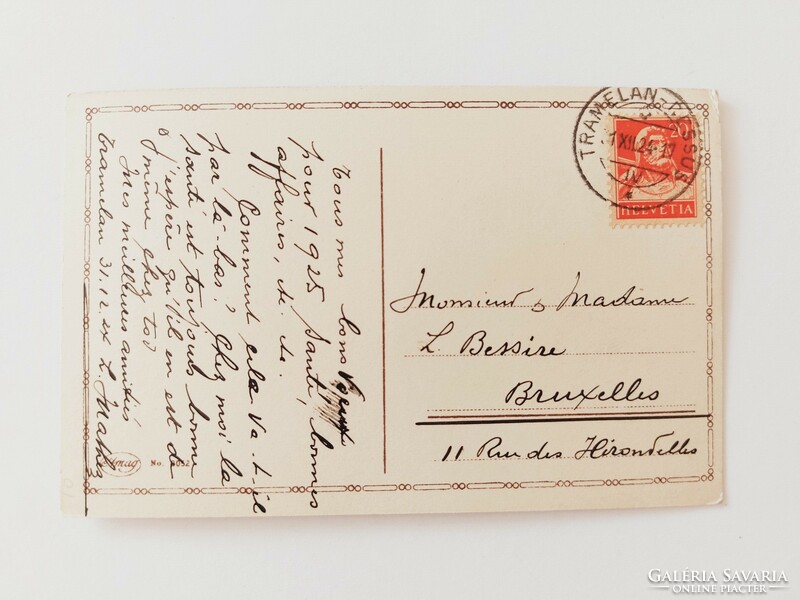 Tous mes bons Voeux
pour 1925 Santé, bonnes
affaires, etc etc.
Comment cela va-t-il
par là-bas? Chez moi la
santé est toujours bonne
j'espère qu'il en est de
même chez toi
Mes meilleures amitiés
Tramelan 31.12.24 L. Mathez
No.
TRAMELAN-DESSUS
XII.24-17
IV
HELVETIA
Monsieur & Madame
L. Bessire
Bruxelles
11 Rue des Hirondelles
GALÉRIA SAVARIA
ONLINE PIACTÉR